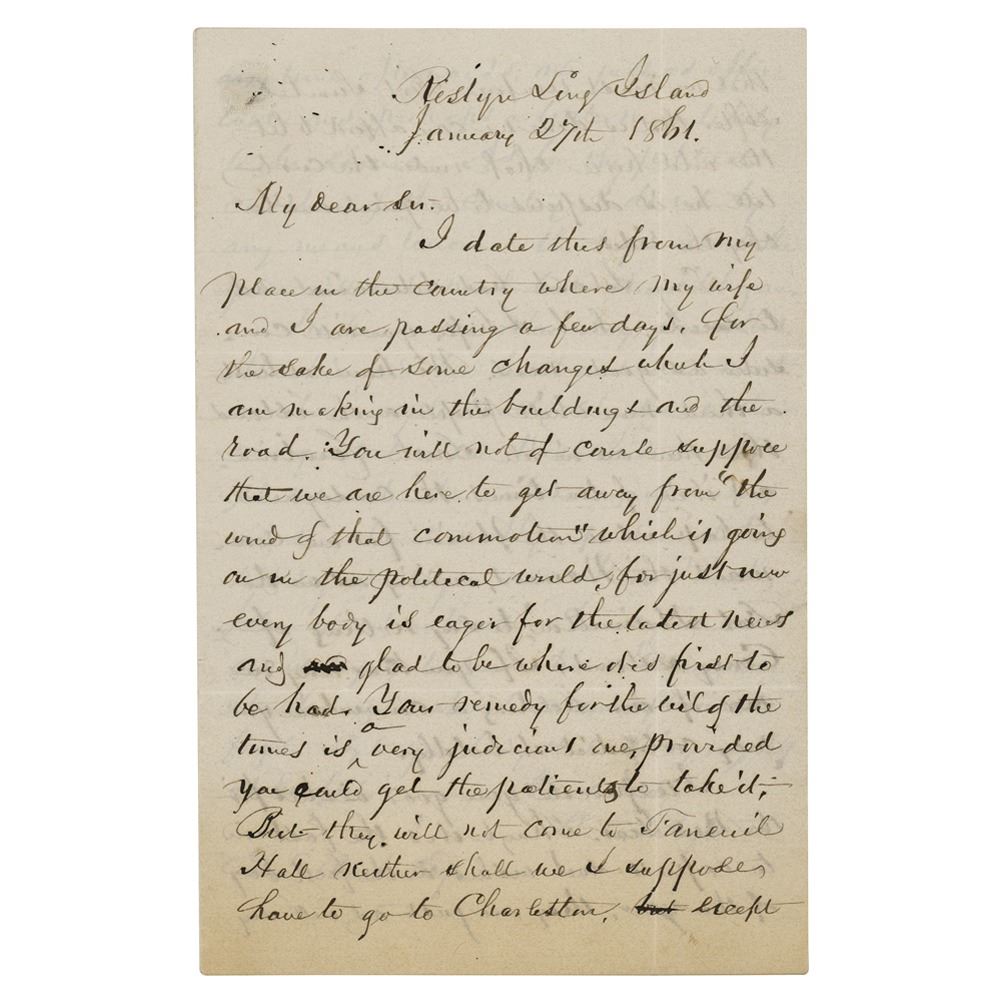 Roslyn Long Island
January 27th 1861.
My dear Sir.
I date this from my
place in the country where my wife
and I are passing a few days, for
the sake of some changes which I
am making in the buildings and the
road. You will not of course suppose
that we are here to get away from "the
wind of that commotion" which is going
on in the political world, for just now
every body is eager for the latest news
and glad to be where it is first to
be had. Your remedy for the evil of the
times is a very judicious one, provided
you could get the patients to take it;
But they will not come to Faneuil
Hall neither shall we I suppose,
have to go to Charleston, but except